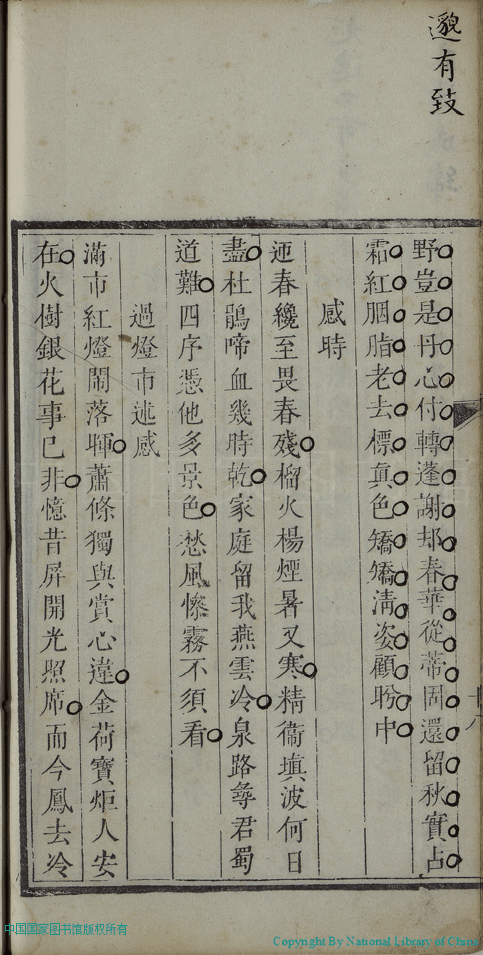 邈有致
野豈是丹心付轉蓬謝却春華從蒂固還留秋實占
霜紅胭脂老去標真色矯矯清姿顧盼中
感時
迎春纔至畏春殘榴火楊煙暑又寒精衞填波何日
盡杜鵑啼血幾時乾家庭留我燕雲冷泉路尋君蜀
道難四序憑他多景色愁風慘霧不須看
過燈市述感
滿市紅燈鬧落暉蕭條獨與賞心違金荷寶炬人安
在火樹銀花事已非憶昔屏開光照席而今鳳去冷
十八
中国国家图书馆版权所有
Copyright By National Library of China